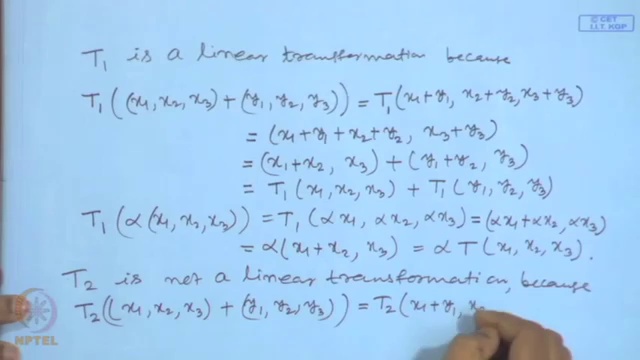 © CET
I.I.T. KGP
T₁ is a linear transformation because
T₁((x₁, x₂, x₃) + (y₁, y₂, y₃)) = T₁(x₁+y₁, x₂+y₂, x₃+y₃)
= (x₁+y₁+x₂+y₂, x₃+y₃)
= (x₁+x₂, x₃) + (y₁+y₂, y₃)
= T₁(x₁, x₂, x₃) + T₁(y₁, y₂, y₃)
T₁(α(x₁, x₂, x₃)) = T₁(αx₁, αx₂, αx₃) = (αx₁+αx₂, αx₃)
= α(x₁+x₂, x₃) = αT(x₁, x₂, x₃).
T₂ is not a linear transformation, because
T₂((x₁, x₂, x₃) + (y₁, y₂, y₃)) = T₂(x₁+y₁, x₂
NPTEL